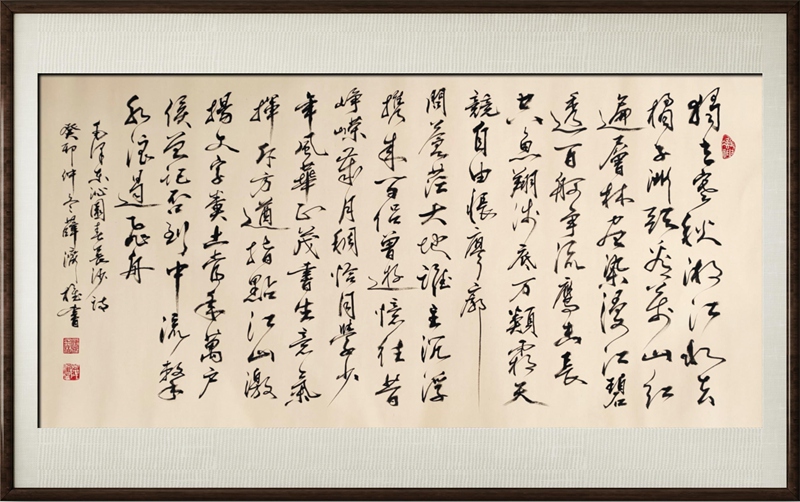 獨立寒秋湘江北去
橘子洲頭看萬山紅
遍層林盡染漫江碧
透百舸爭流鷹擊長
空魚翔淺底万類霜天
競自由悵寥廓
問蒼茫大地誰主沉浮
攜來百侶曾遊憶往昔
崢嶸歲月稠恰同學少
年風華正茂書生意氣
揮斥方遒指點江山激
揚文字糞土當年萬戶
侯曾記否到中流擊
水浪遏飛舟
毛澤東沁園春長沙詩
癸卯仲冬薛濟書